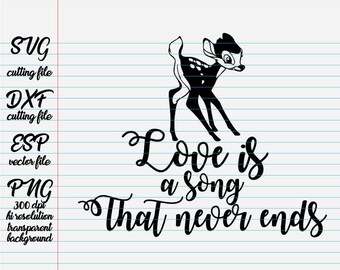 SVG
cutting file
DXF
cutting file
ESP
vector file
PNG
300 dpt
hi resolution
transparent
background
Love is
a song
That never ends